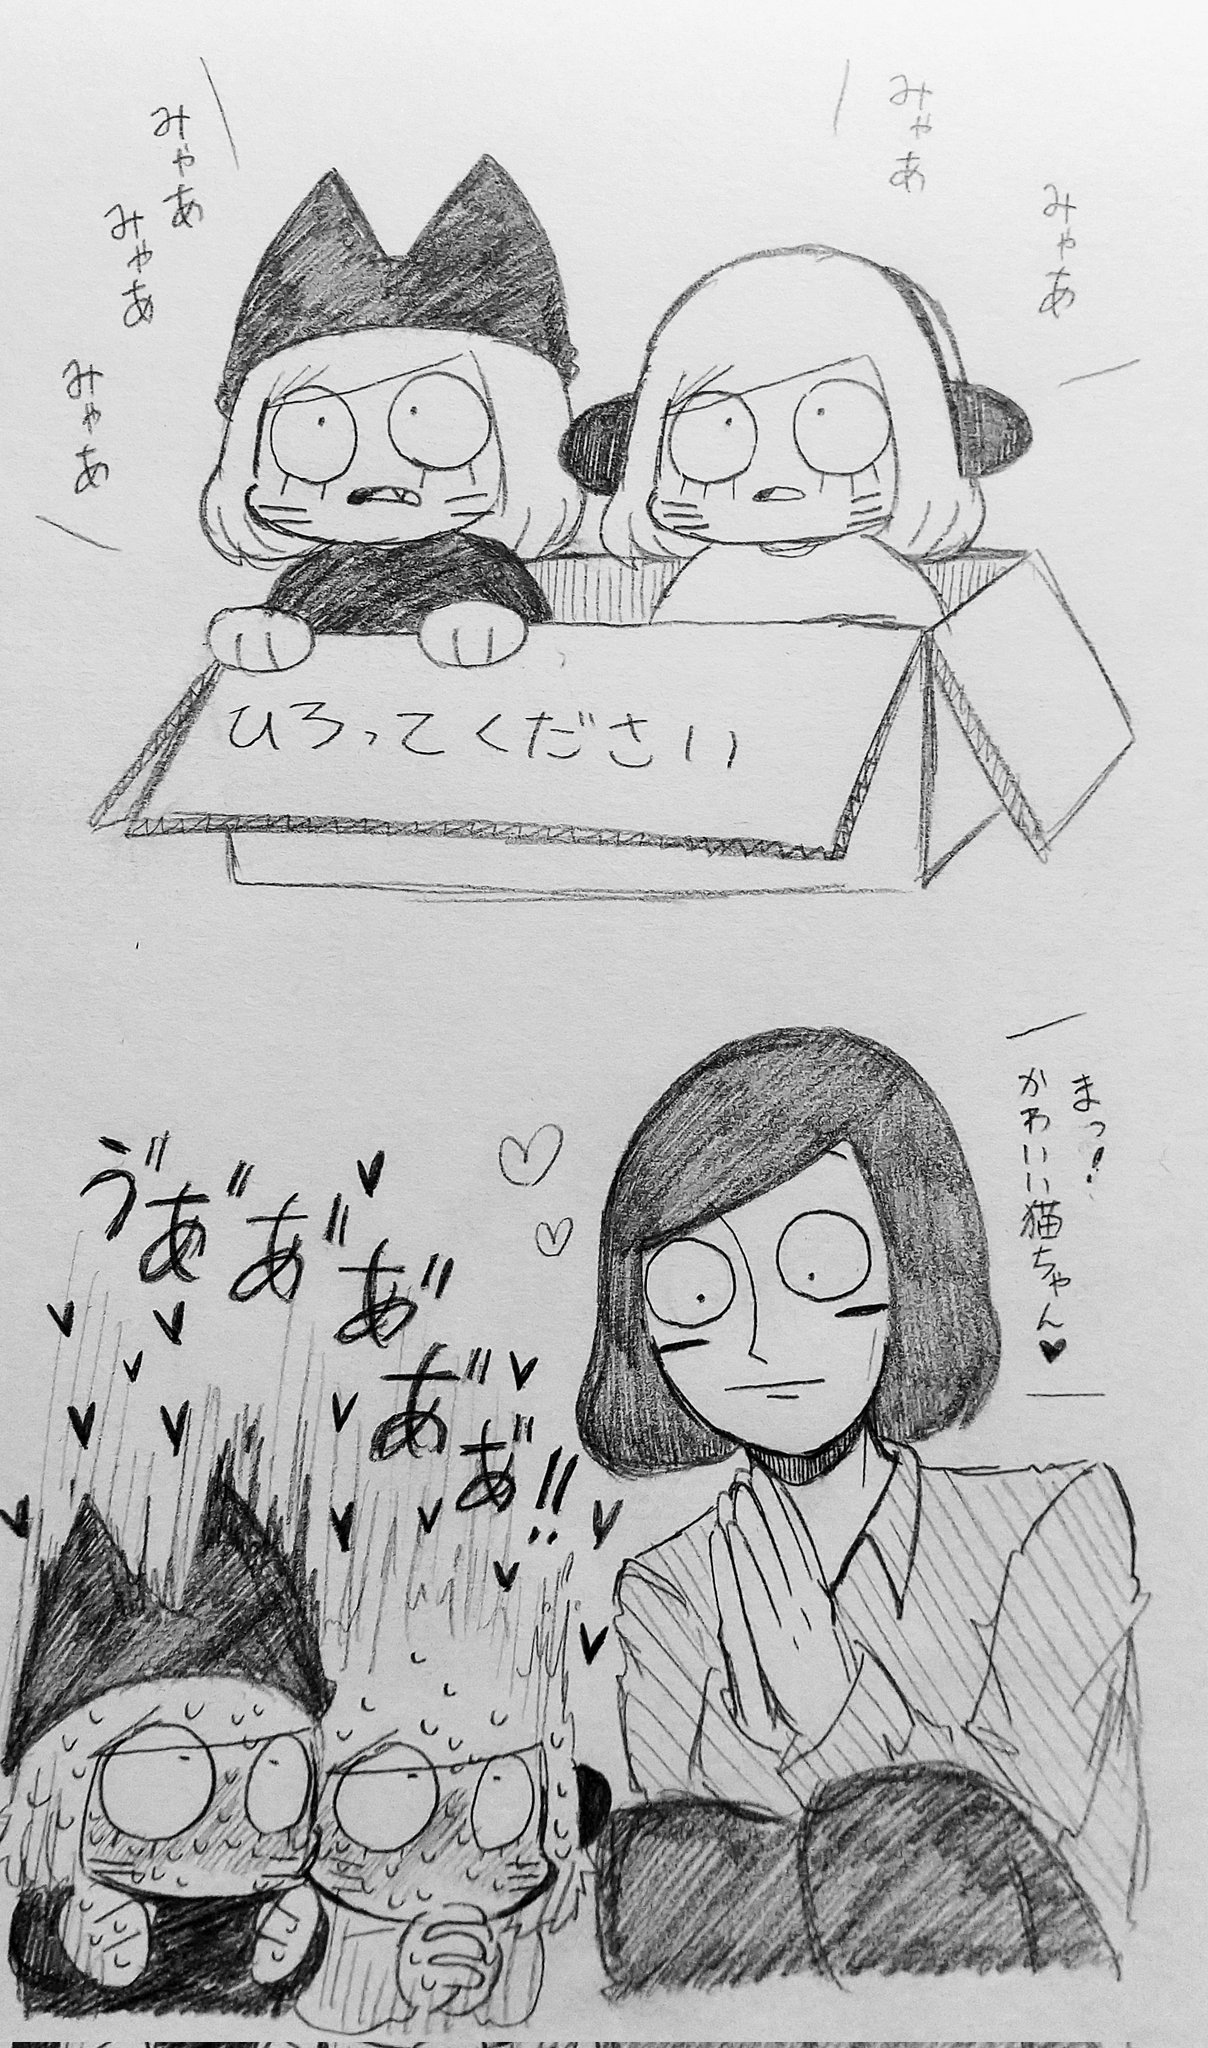 みゃあ
みゃあ
みゃあ
みゃあ
みゃあ
ひろってください
まっ!
かわいい猫ちゃん♥
ゔあ゙あ゙あ゙あ゙あ゙!!